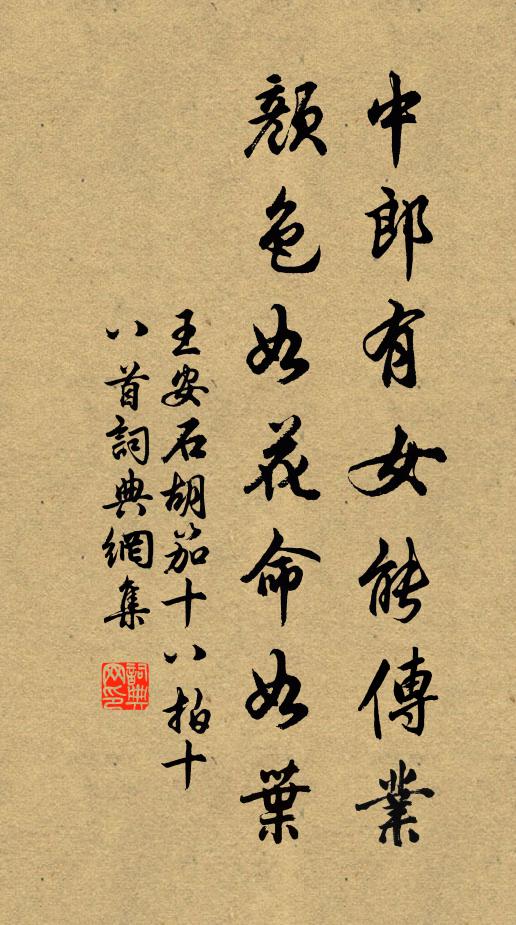 中郎有女能傳業
顏色如花命如葉
王安石胡笳十八拍十
八首詞典網集
詞典網印